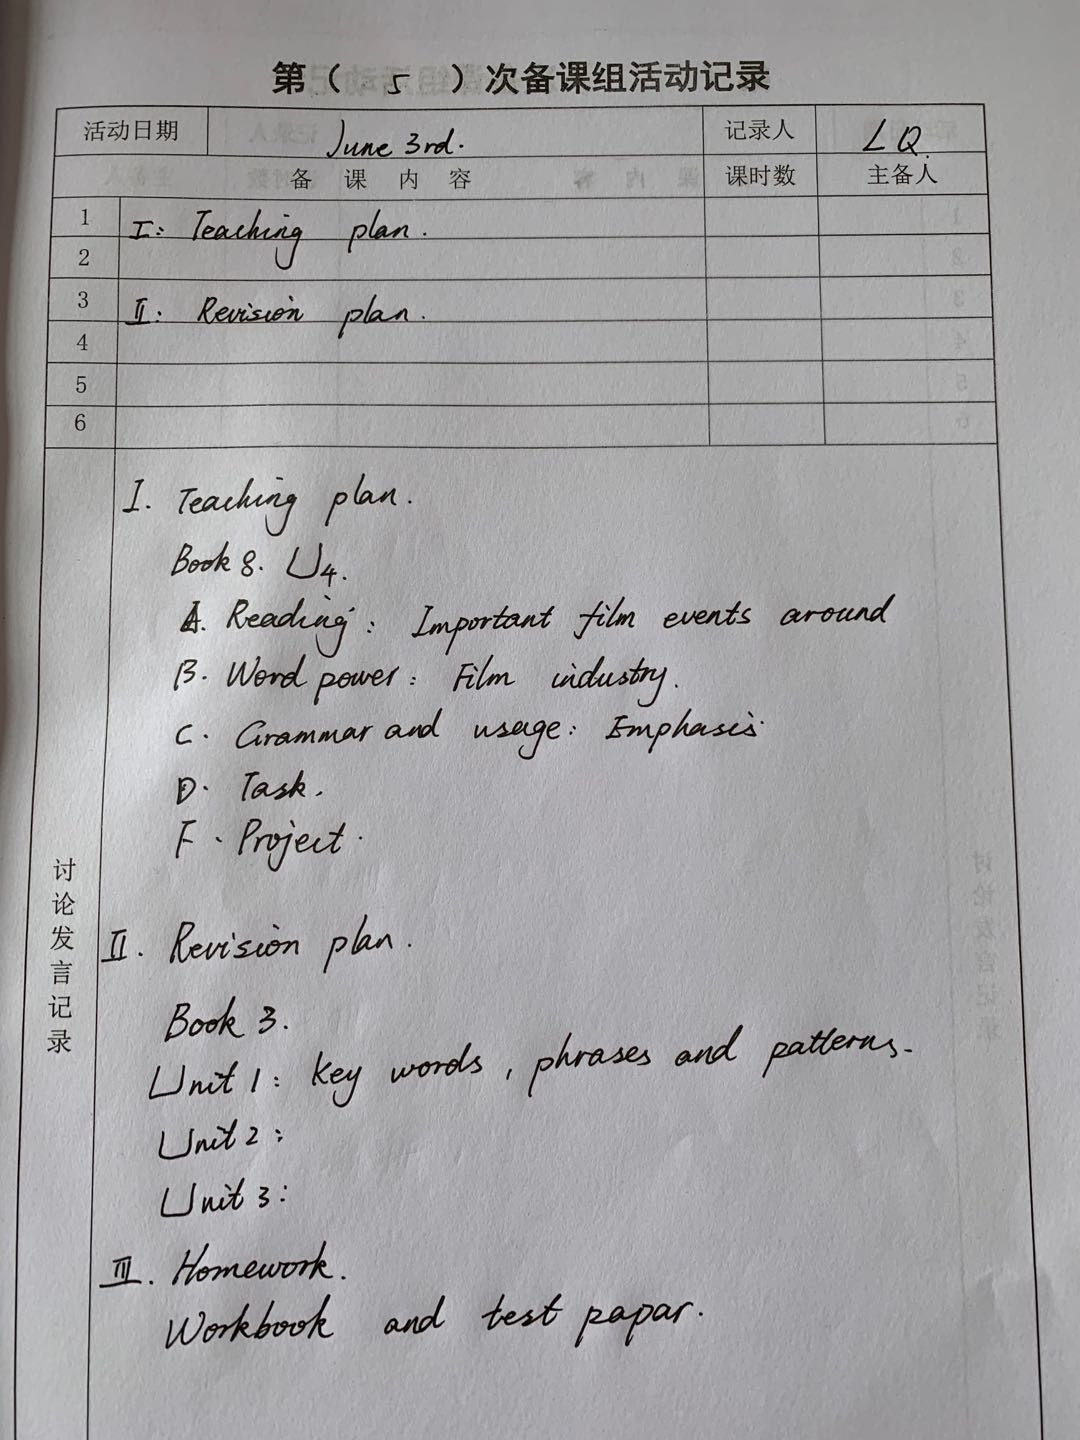 第（ 5 ）次备课组活动记录
活动日期 June 3rd. 记录人 LQ.
备 课 内 容 课时数 主备人
1 I: Teaching plan.
2
3 II: Revision plan.
4
5
6
讨论发言记录
I. Teaching plan.
Book 8. U4.
A. Reading: Important film events around
B. Word power: Film industry.
C. Grammar and usage: Emphasis
D. Task.
F. Project.
II. Revision plan.
Book 3.
Unit 1: key words, phrases and patterns.
Unit 2:
Unit 3:
III. Homework.
Workbook and test papar.